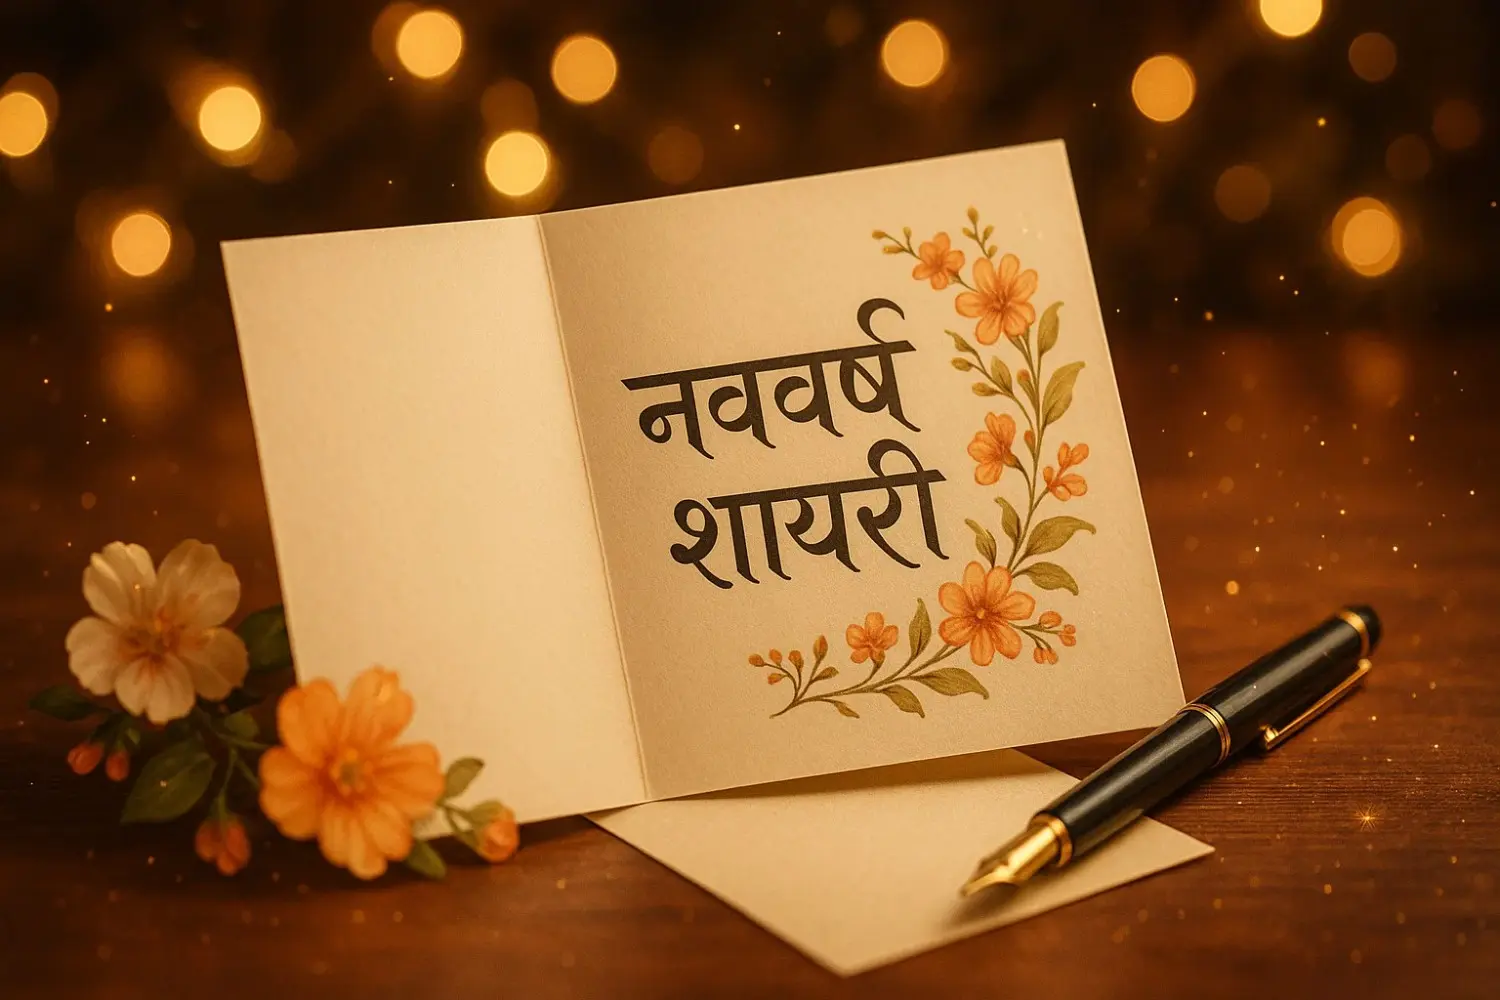 नववर्ष
शायरी